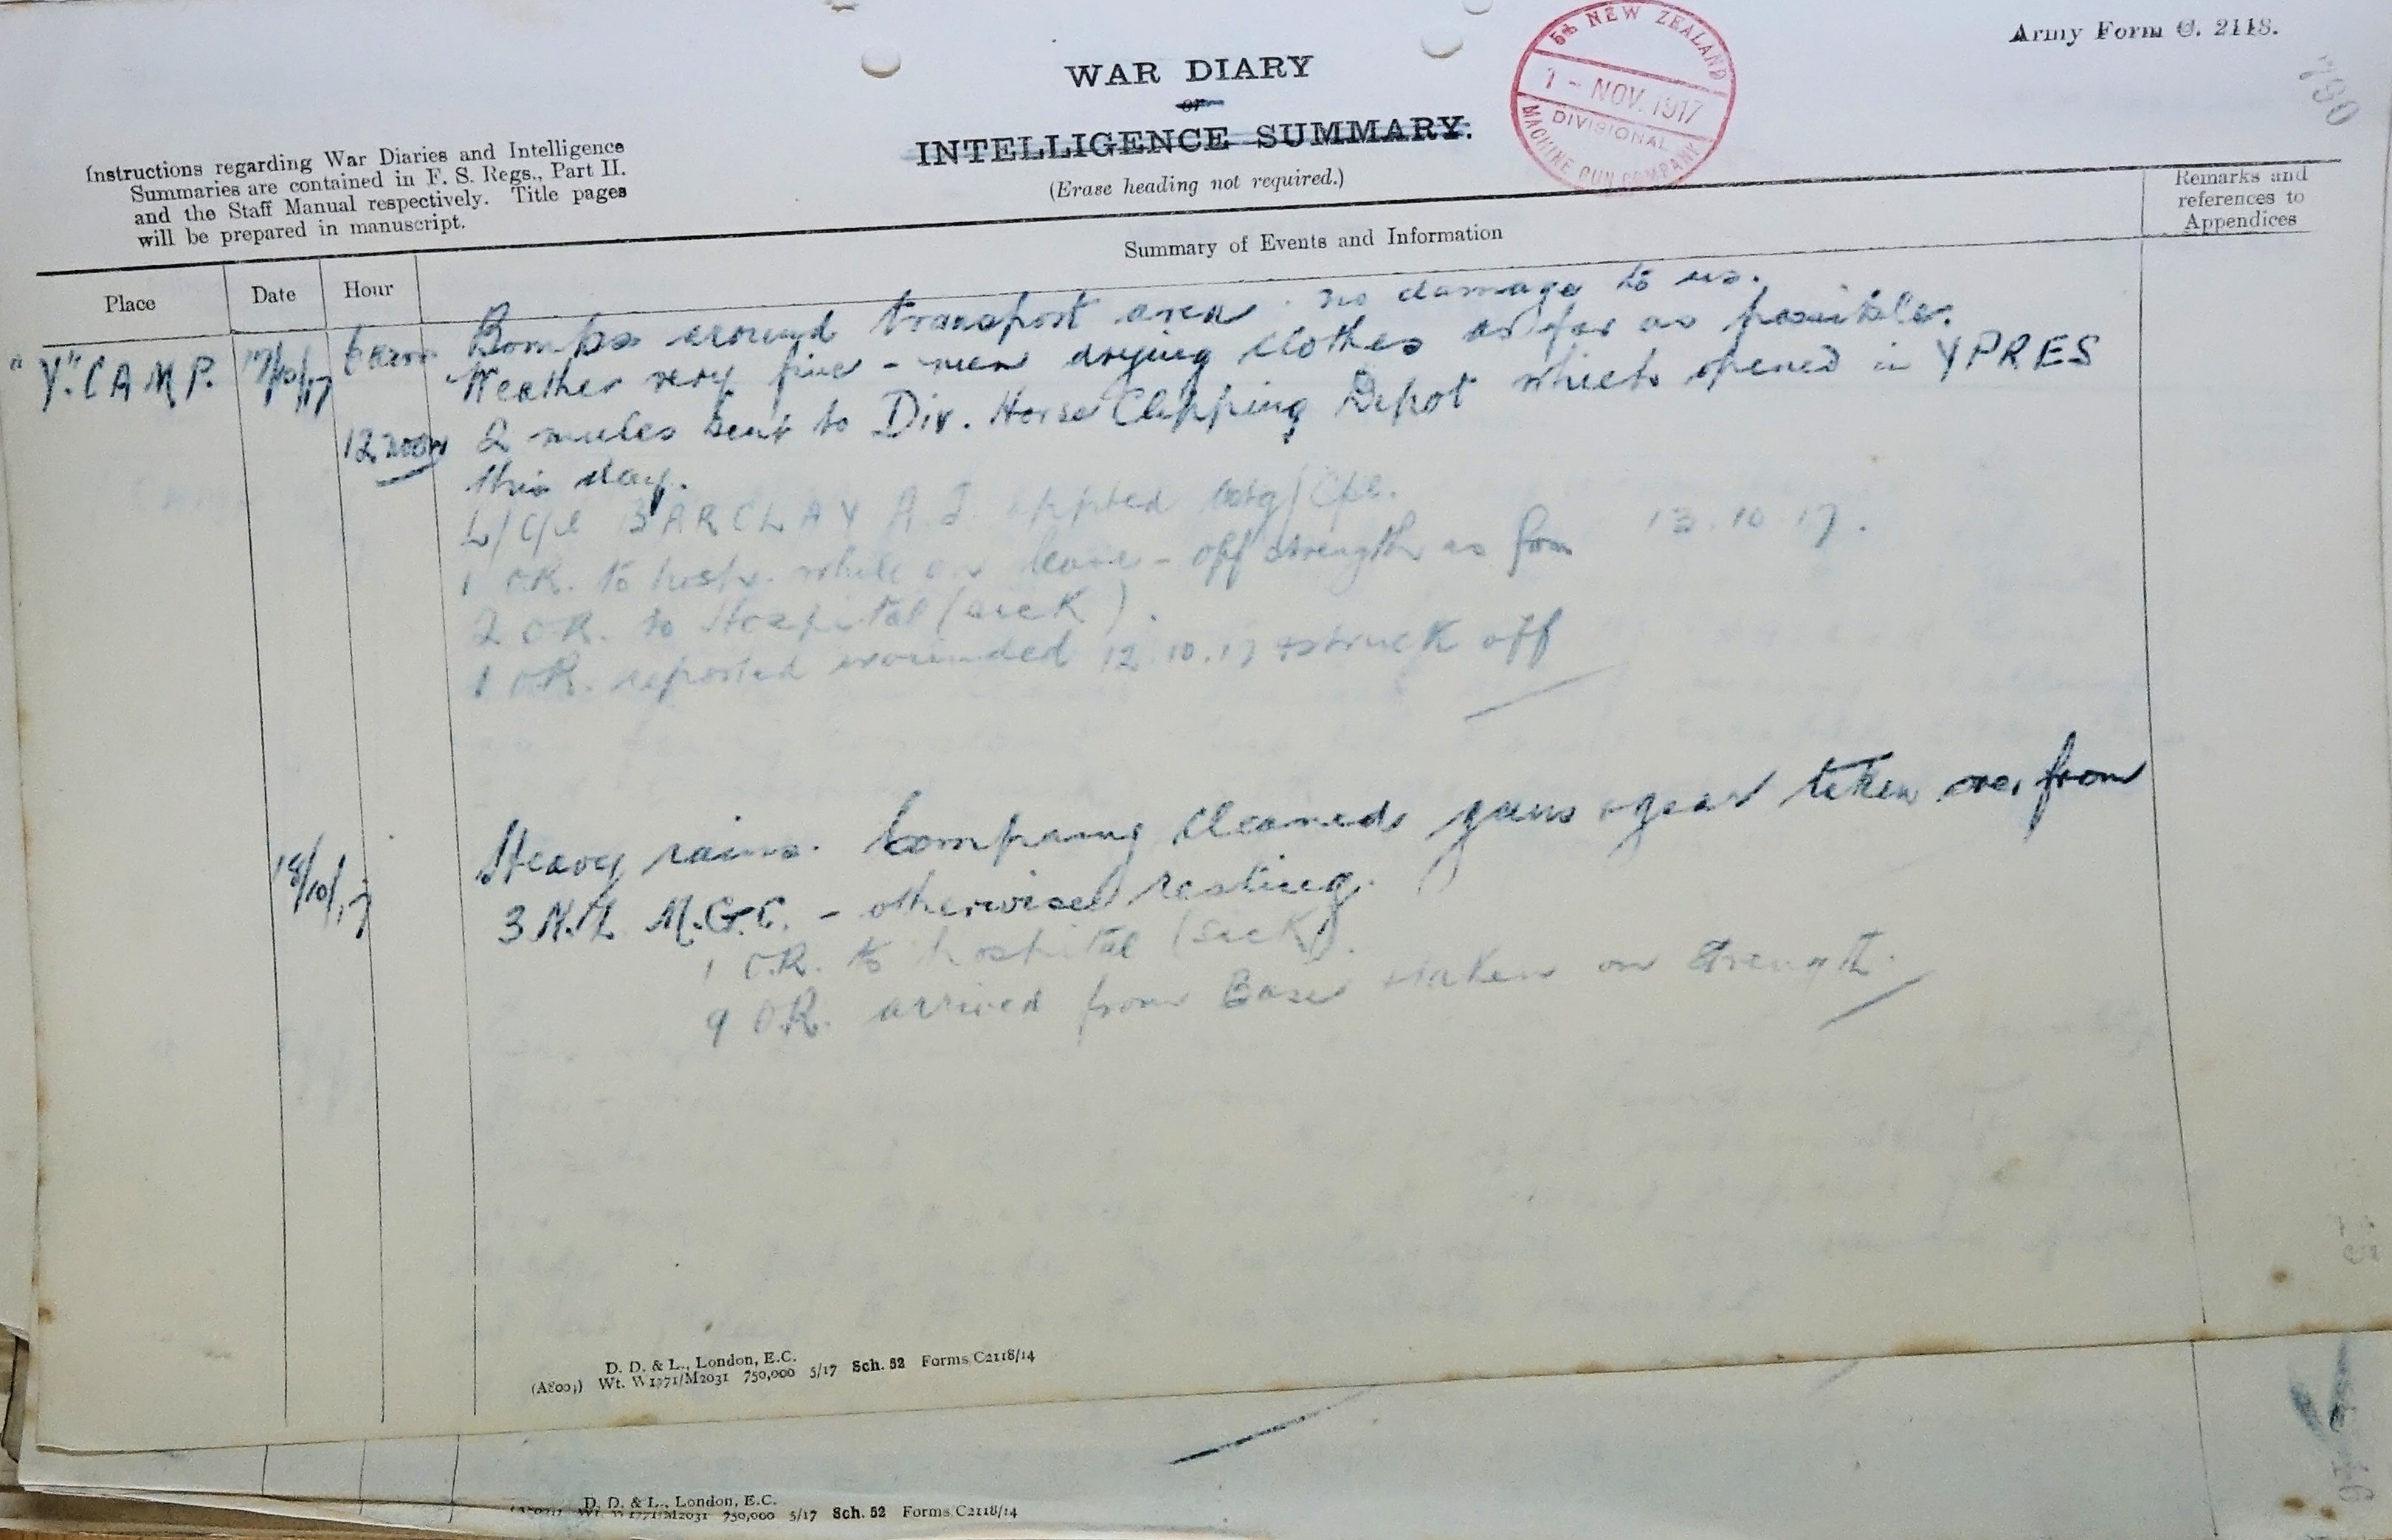 Army Form C. 2118.
5th NEW ZEALAND
1 - NOV. 1917
DIVISIONAL
MACHINE GUN COMPANY
WAR DIARY
or
INTELLIGENCE SUMMARY.
(Erase heading not required.)
Instructions regarding War Diaries and Intelligence
Summaries are contained in F. S. Regs., Part II.
and the Staff Manual respectively. Title pages
will be prepared in manuscript.
Place Date Hour Summary of Events and Information Remarks and
references to
Appendices
"Y" CAMP. 17/10/17 6am Bombs around transport area no damage to us.
Weather very fine - men drying clothes as far as possible.
12 noon 2 mules sent to Div. Horse Clipping Depot which opened in YPRES
this day.
L/Cpl BARCLAY A.J. appted Cpl.
1 O.R. to hosp. while on leave - off strength as from 13.10.17.
2 O.R. to Hospital (sick).
1 O.R. reported wounded 12.10.17 & struck off
18/10/17 Heavy rains. Company cleaned guns & gear taken over from
3 N.Z. M.G.C. - otherwise resting.
1 O.R. to hospital (sick).
9 O.R. arrived from Base & taken on strength.
D. D. & L., London, E.C.
Wt. W1771/M2031 750,000 5/17 Sch. 52 Forms C2118/14
D. D. & L., London, E.C.
Wt. W1771/M2031 750,000 5/17 Sch. 52 Forms C2118/14